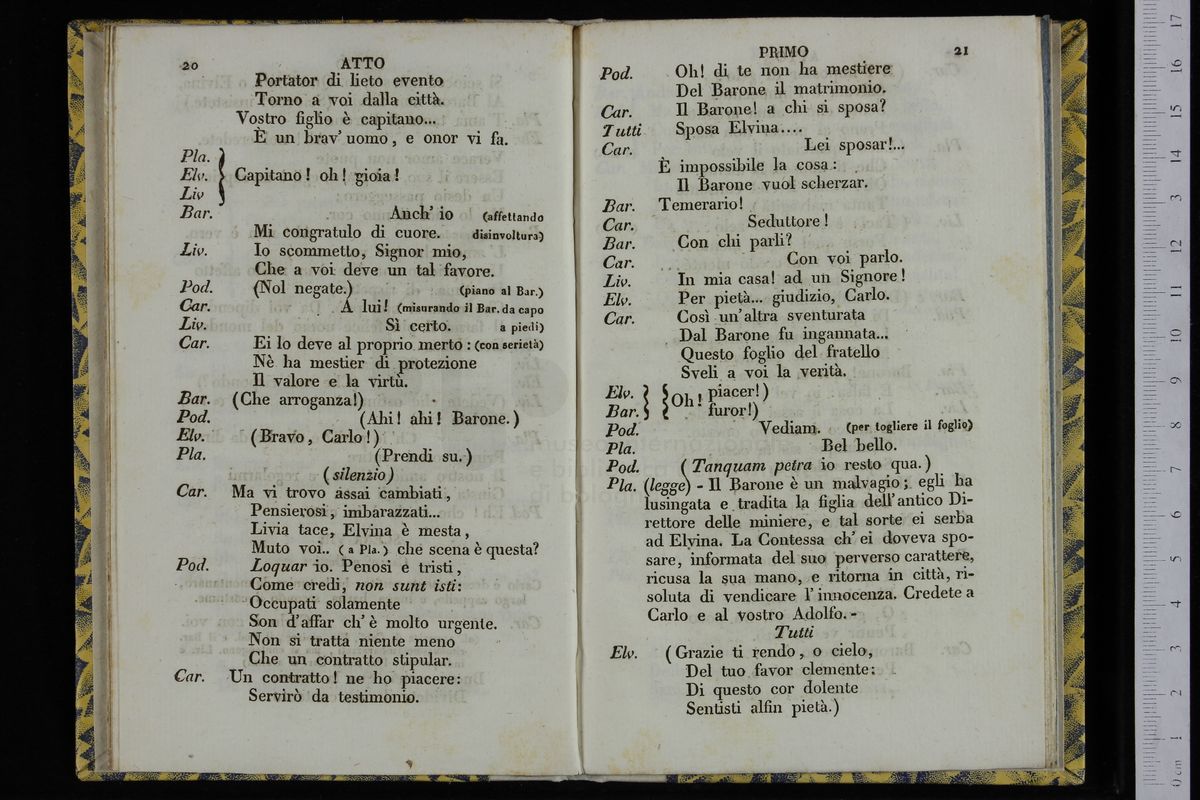 20 ATTO
Portator di lieto evento
Torno a voi dalla città.
Vostro figlio è capitano...
È un brav' uomo, e onor vi fa.
Pla.
Elv. Capitano! oh! gioia!
Liv
Bar. Anch' io (affettando
Mi congratulo di cuore. disinvoltura)
Liv. Io scommetto, Signor mio,
Che a voi deve un tal favore.
Pod. (Nol negate.) (piano al Bar.)
Car. A lui! (misurando il Bar. da capo
Liv. Sì certo. a piedi)
Car. Ei lo deve al proprio merto: (con serietà)
Nè ha mestier di protezione
Il valore e la virtù.
Bar. (Che arroganza!)
Pod. (Ahi! ahi! Barone.)
Elv. (Bravo, Carlo!)
Pla. (Prendi su.)
(silenzio)
Car. Ma vi trovo assai cambiati,
Pensierosi, imbarazzati...
Livia tace, Elvina è mesta,
Muto voi.. (a Pla.) che scena è questa?
Pod. Loquar io. Penosi e tristi,
Come credi, non sunt isti:
Occupati solamente
Son d'affar ch' è molto urgente.
Non si tratta niente meno
Che un contratto stipular.
Car. Un contratto! ne ho piacere:
Servirò da testimonio.
PRIMO 21
Pod. Oh! di te non ha mestiere
Del Barone il matrimonio.
Car. Il Barone! a chi si sposa?
Tutti Sposa Elvina....
Car. Lei sposar!...
È impossibile la cosa:
Il Barone vuol scherzar.
Bar. Temerario!
Car. Seduttore!
Bar. Con chi parli?
Car. Con voi parlo.
Liv. In mia casa! ad un Signore!
Elv. Per pietà... giudizio, Carlo.
Car. Così un'altra sventurata
Dal Barone fu ingannata...
Questo foglio del fratello
Sveli a voi la verità.
Elv. Oh! piacer!)
Bar. furor!)
Pod. Vediam. (per togliere il foglio)
Pla. Bel bello.
Pod. (Tanquam petra io resto qua.)
Pla. (legge) - Il Barone è un malvagio; egli ha
lusingata e tradita la figlia dell'antico Di-
rettore delle miniere, e tal sorte ei serba
ad Elvina. La Contessa ch' ei doveva spo-
sare, informata del suo perverso carattere,
ricusa la sua mano, e ritorna in città, ri-
soluta di vendicare l'innocenza. Credete a
Carlo e al vostro Adolfo. -
Tutti
Elv. (Grazie ti rendo, o cielo,
Del tuo favor clemente:
Di questo cor dolente
Sentisti alfin pietà.)